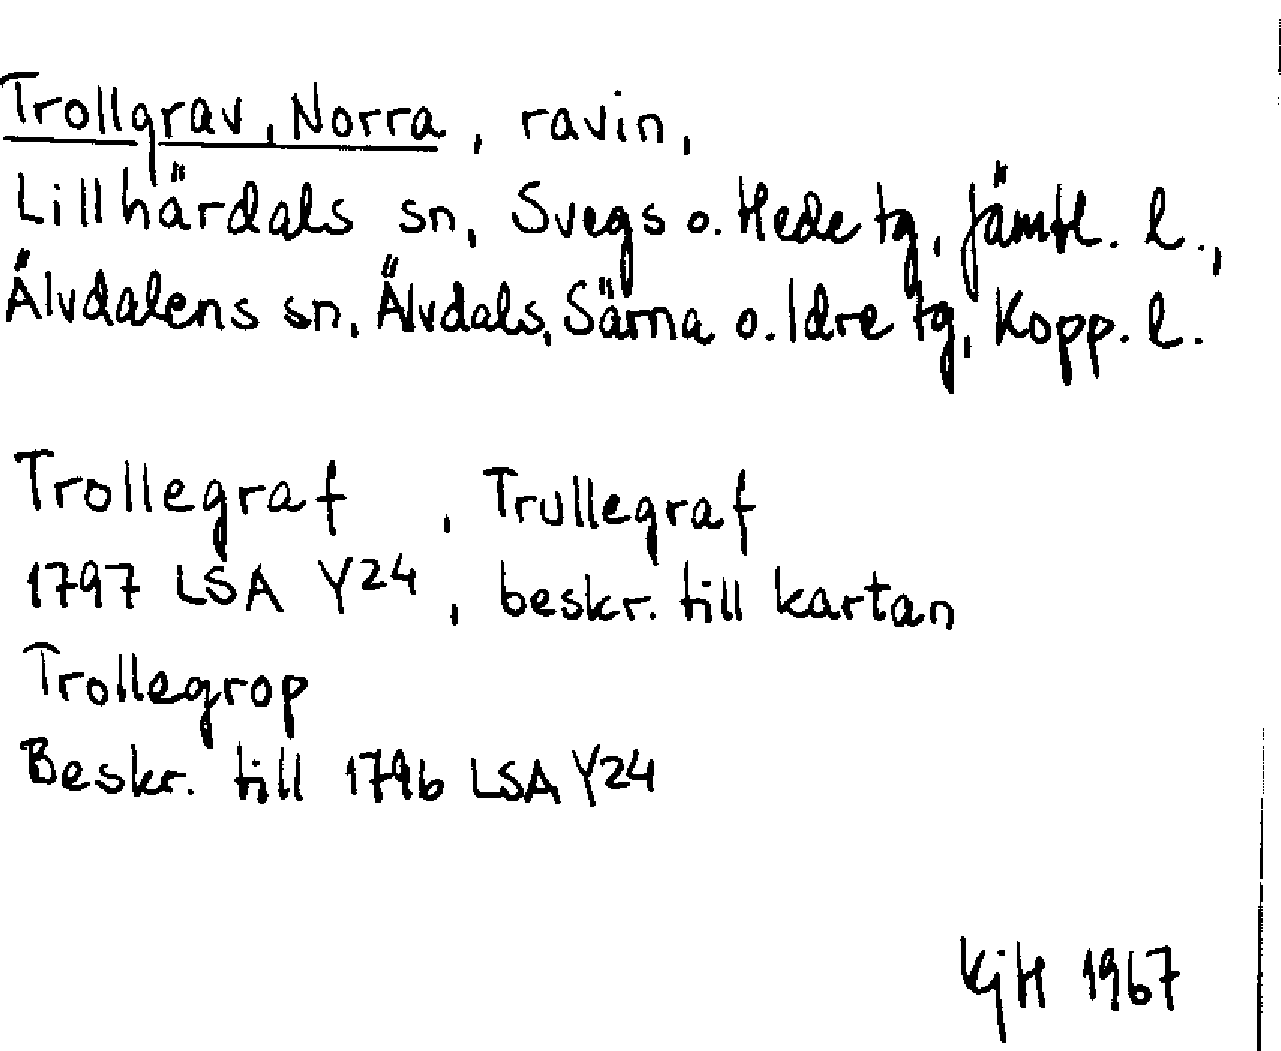 Trollgrav, Norra, ravin,
Lillhärdals sn, Svegs o. Hede tg, Jämtl. l.,
Älvdalens sn, Älvdals, Särna o. Idre tg, Kopp. l.
Trollegraf, Trullegraf
1797 LSA Y24, beskr. till kartan
Trollegrop
Beskr. till 1796 LSA Y24
KjH 1967